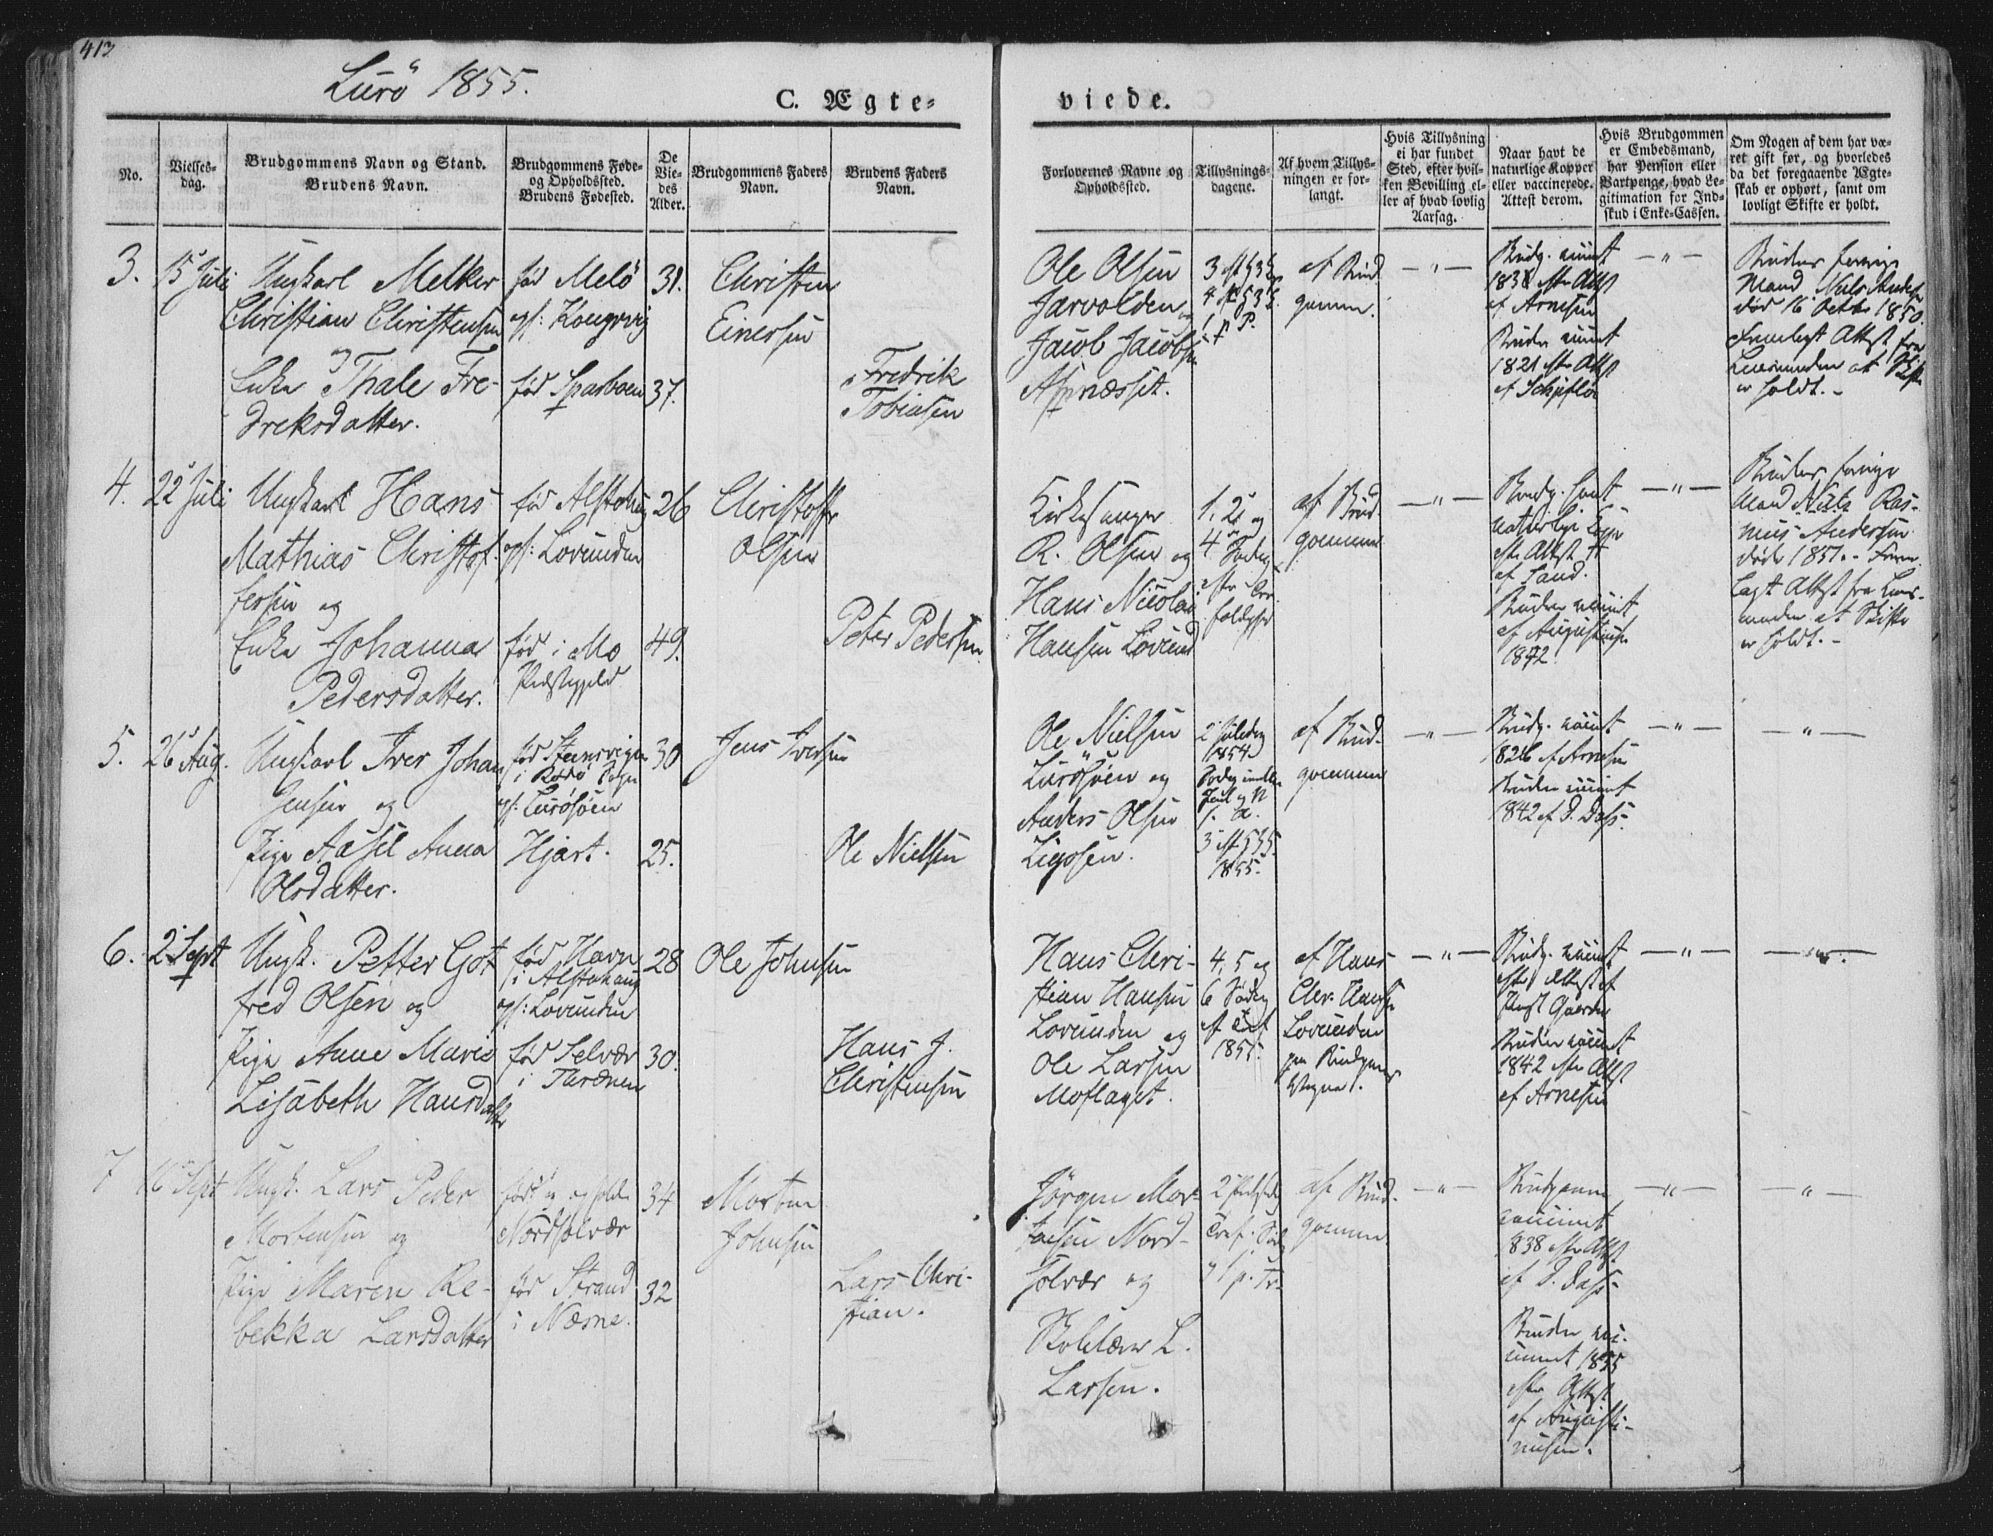 413
Lurö 1855.
C. Ægte=
viede.
No.
Vielses-
dag.
Brudgommens Navn og Stand.
Brudens Navn.
Brudgommens Føde-
og Opholdssted.
Brudens Fødested.
De
Vie-
des
Alder.
Brudgommens Faders
Navn.
Brudens Faders
Navn.
Forlovernes Navne og
Opholdssted.
Tillysnings-
dagene.
Af hvem Tillys-
ningen er for-
langt.
Hvis Tillysning
ei har fundet
Sted, efter hvil-
ken Bevilling el-
ler af hvad lovlig
Aarsag.
Naar havt de
naturlige Kopper
eller vaccinerede.
Attest derom.
Hvis Brudgommen
er Embedsmand,
har Pension eller
Vartpenge, hvad Le-
gitimation for Ind-
skud i Enke-Cassen.
Om Nogen af dem har væ-
ret gift før, og hvorledes
da det foregaaende Ægte-
skab er ophørt, samt om
lovligt Skifte er holdt.
3.
15 Juli
Ungkarl Melker
Christian Christensen
og
Enke Thale Fre-
dreksdatter.
fød Melö
ops: Kongsvig
fød Sparboen
31.
37.
Christen
Einersen
Fredrik
Tobiasen
Ole Olsen
Jarvolden og
Jacob Jacobsen
Aspnæsset.
af Brud
gommen.
— " —
Brudg. vaccint
1838 efter Attest
af Arnesen
Bruden vaccint
1821 efter Attest
af
— " —
Brudens forrige
Mand Niels
död 16 Octbr 1850.
Fremlagt Attest fra
at Skifte
er holdt. -
4.
22 Juli
Ungkarl Hans
Mathias Christof-
fersen og
Enke Johanna
Pedersdatter.
fød Alstahaug
ops: Lovunden
fød i Mo
Præstegjeld
26
49.
Christoffer
Olsen
Peter Pedersen
Kirkesanger
R. Olsen og
Hans Nicolai
Hansen Lovund
1, 2 og
4
af Brud
gommen
— " —
Brudg. havt
naturlige Kopper
efter Attest
af Sand.
Bruden vaccint
af Augustinusen
1842
— " —
Brudens forrige
Mand Niels Ras-
mus Andersen
död 1851. - Frem
lagt Attest fra Lens-
manden at Skifte
er holdt. -
5.
26 Aug.
Ungkarl Iver Johan
Jensen og
Pige Aasel Anna
Olsdatter.
fød Stensvigen
i Rödö Sogn
ops: Lurösöen
Hjart.
30
25.
Jens Iversen
Ole Nielsen
Ole Nielsen
Lurösöen og
Anders Olsen
2 Juledag
1854
1855.
af Brud-
gommen
— " —
Brudg. vaccint
1826 af Arnesen
Bruden vaccint
1842 af P. Dass.
— " —
— " —
6.
2 Sept
Ungk. Petter Got
fred Olsen og
Pige Anne Marie
Lisabeth Hansdatter
fød Havn
i Alstahaug
ops: Lovunden
fød Selvær
i Thrænen
28
30.
Ole Johnsen
Hans J.
Christensen
Hans Chri-
stian Hansen
Lovunden og
Ole Larsen
Moflaget.
4, 5 og
6 Söndag
af Tref
1855
af Hans
Chr. Hansen
Lovunden
paa Brudgom
Vegne.
— " —
Brudg. vaccint
efter Attest af
Bruden vaccint
1842 efter Attest
af Arnesen
— " —
— " —
7
16 Sept
Ungk. Lars Peder
Mortensen og
Pige Maren Re-
bekka Larsdatter
Nordsolvær
fød Strand
i Næsne.
34
32
Morten
Johnsen
Lars Chri-
stian.
Jörgen Mor-
tensen Nord-
solvær og
Skolelærer L.
Larsen.
af Brud-
gommen
— " —
Brudgommen
vaccint
1838 efter Attest
af P. Dass
Bruden vac-
cinert 1835
efter Attest
af Augusti-
nusen.
— " —
— " —